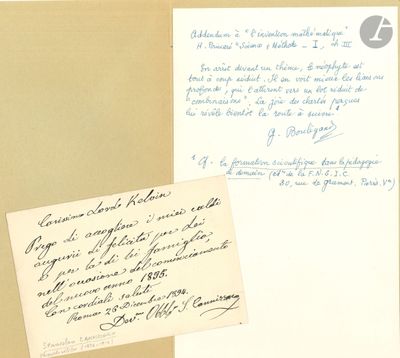 Addendum à "l'invention mathématique"
H. Poincaré "Science et Méthode" - I, ch III
En arrêt devant un thème, le néophyte est
tout à coup séduit. Il en voit mieux les liaisons
profondes, qui l'attirent vers un lot réduit de
"combinaisons". La joie des clartés perçues
lui révèle bientôt la route à suivre. 1
G. Bouligand
1 Cf. la formation scientifique dans la pédagogie
de demain (Edns de la F.N.G.I.C.
30, rue de Gramont, Paris. Ve)
Carissimo Lord Kelvin
Prego di accogliere i miei caldi
augurii di felicità per Lei
e per la di lei famiglia,
nell'occasione del cominciamento
del nuovo anno 1895.
Con cordiali saluti
Roma 28 Dicembre 1894.
Dev.mo Obbl.mo S. Cannizzaro
STANISLAO CANNIZZARO